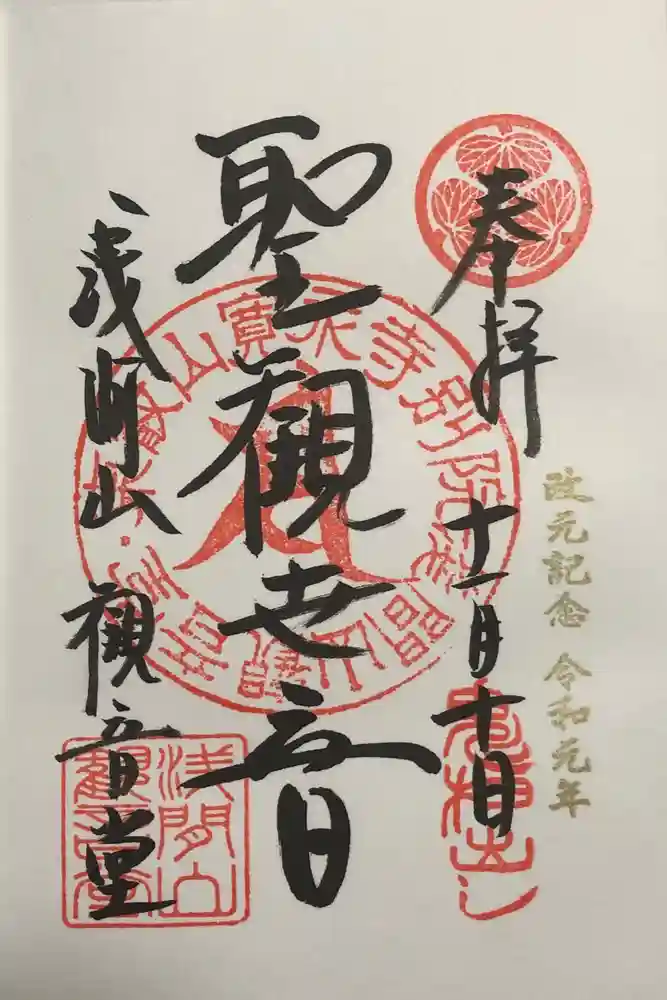 奉拝
十一月十日
改元記念 令和元年
聖観世音
浅間山 観音堂
浅間山
観音堂